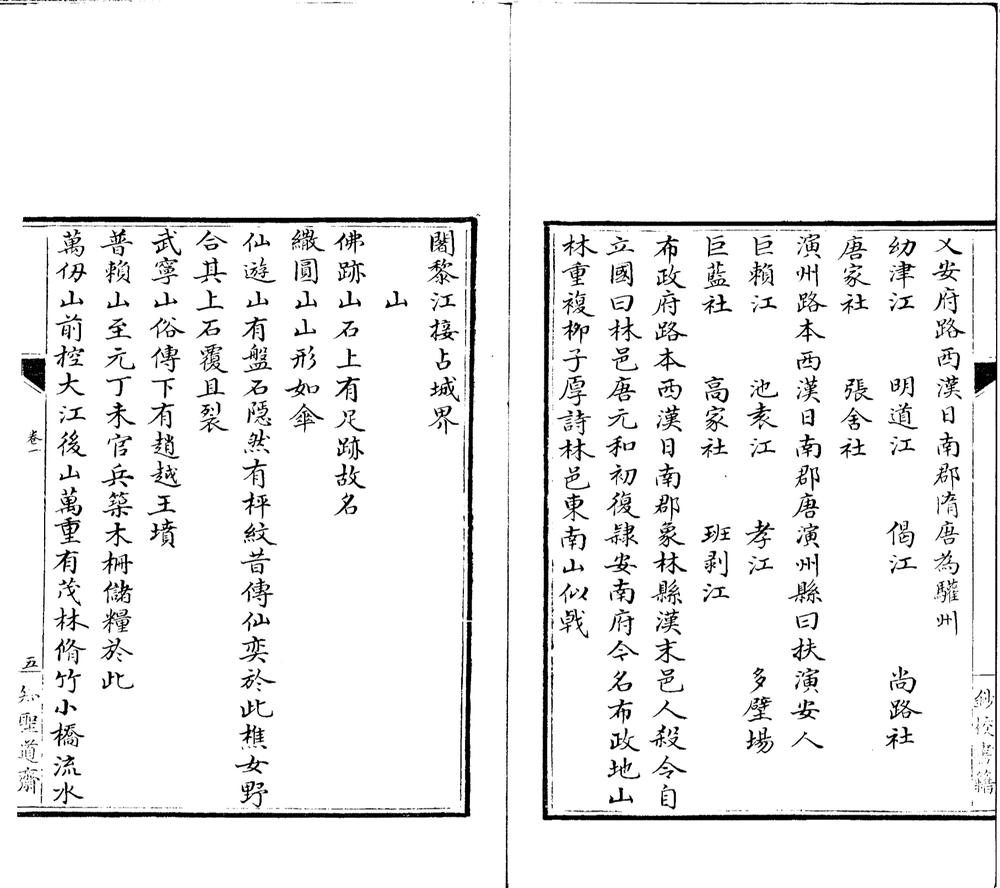 乂安府路西漢日南郡隋唐為驩州
幼津江　明道江　偈江　尚路社
唐家社　張舍社
演州路本西漢日南郡唐演州縣曰扶演安人
巨賴江　池袁江　孝江　多壁場
巨藍社　高家社　班剥江
布政府路本西漢日南郡象林縣漢末邑人殺令自
立國曰林邑唐元和初復隷安南府令名布政地山
林重複柳子厚詩林邑東南山似戟
鈔校書籍
闍黎江接占城界
山
佛跡山石上有足跡故名
繖圓山山形如傘
仙遊山有盤石隠然有枰紋昔傳仙奕於此樵女野
合其上石覆且裂
武寧山俗傳下有趙越王墳
普賴山至元丁未官兵築木柵儲糧於此
萬仭山前控大江後山萬重有茂林脩竹小橋流水
卷一
五
知聖道齋